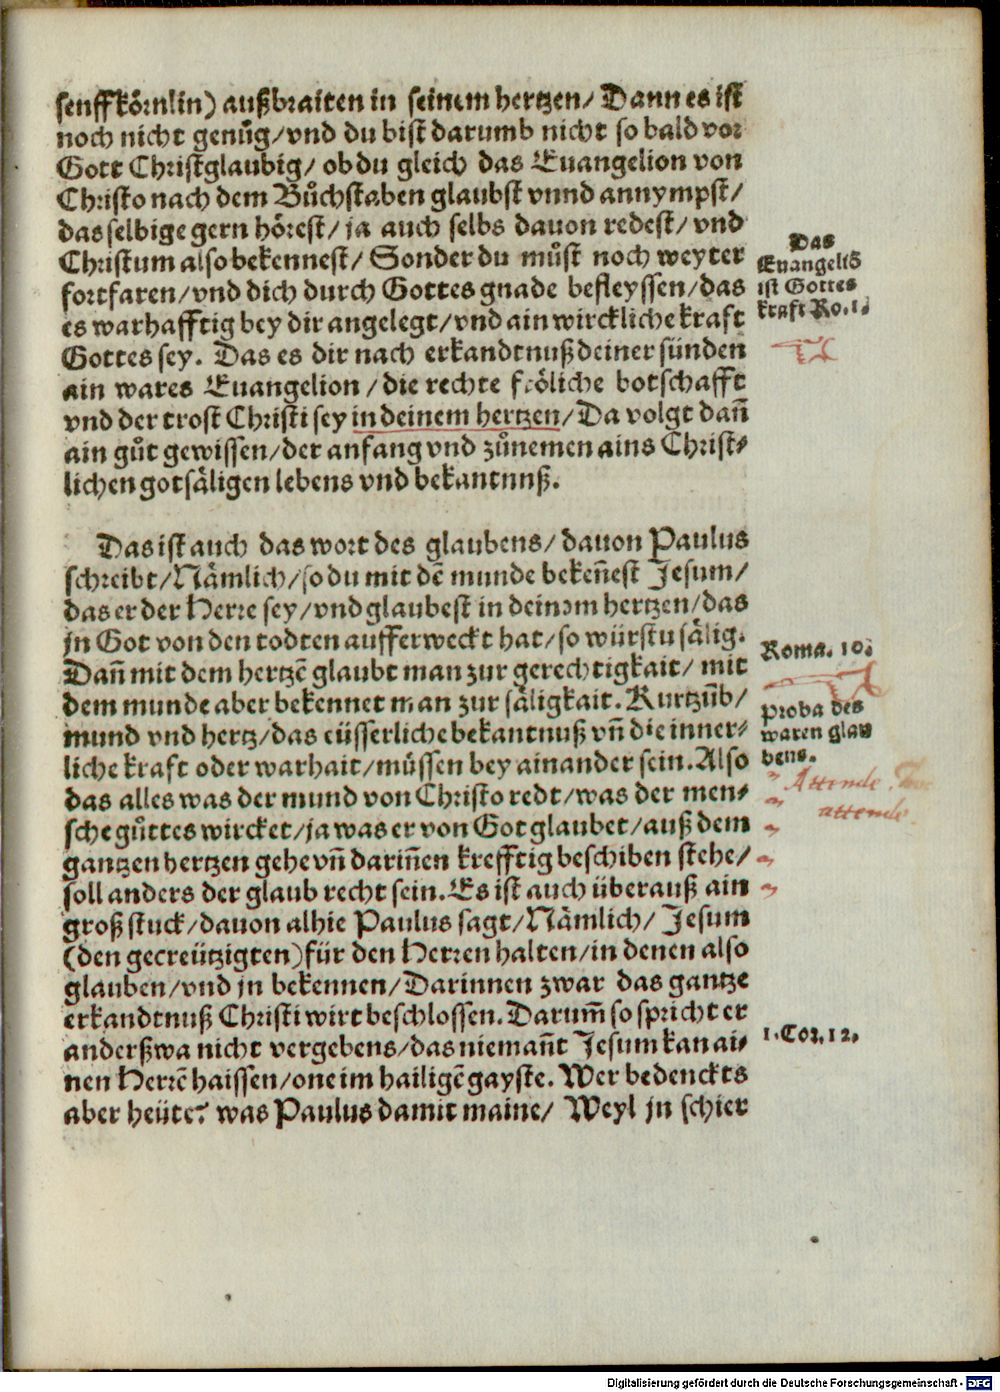 senffkörnlin) außbraiten in seinem hertzen/ Dann es ist
noch nicht genůg/vnd du bist darumb nicht so bald vor
Gott Christglaubig/ ob du gleich das Euangelion von
Christo nach dem Bůchstaben glaubst vnnd annympst/
das selbige gern hörest/ ja auch selbs dauon redest/ vnd
Christum also bekennest/ Sonder du můst noch weyter
fortfaren/vnd dich durch Gottes gnade befleyssen/das
es warhafftig bey dir angelegt/vnd ain wirckliche krafft
Gottes sey. Das es dir nach erkandtnuß deiner sünden
ain wares Euangelion /die rechte fröliche botschafft
vnd der trost Christi sey in deinem hertzen/Da volgt dañ
ain gůt gewissen/der anfang vnd zůnemen ains Christ-
lichen gotsäligen lebens vnd bekantnuß.
Das
Euangeliō
ist Gottes
kraft Ro.1.
Das ist auch das wort des glaubens/ dauon Paulus
schreibt/Nämlich/so du mit dē munde bekeñest Jesum/
das er der Herre sey/vnd glaubest in deinem hertzen/das
jn Got von den todten aufferweckt hat/so würstu sälig.
Dañ mit dem hertzē glaubt man zur gerechtigkait/ mit
dem munde aber bekennet man zur säligkait. Kurtzūb/
mund vnd hertz/das eüsserliche bekantnuß vñ die inner-
liche kraft oder warhait/müssen bey ainander sein.Also
das alles was der mund von Christo redt/was der men-
sche gůttes wircket/ja was er von Got glaubet/auß dem
gantzen hertzen gehe vñ dariñen krefftig beschiben stehe/
soll anders der glaub recht sein.Es ist auch überauß ain
groß stuck/dauon alhie Paulus sagt/Nämlich/ Jesum
(den gecreützigten)für den Herren halten/in denen also
glauben/vnd jn bekennen/Darinnen zwar das gantze
erkandtnuß Christi wirt beschlossen.Darum̄ so spricht er
anderßwa nicht vergebens/das niemañt Jesum kan ai-
nen Herrē haissen/one im hailigē gayste. Wer bedenckts
aber heüte? was Paulus damit maine/ Weyl jn schier
Roma. 10.
Proba des
waren glau
bens.
Attende
attende
1.Cor.12.
Digitalisierung gefördert durch die Deutsche Forschungsgemeinschaft - DFG